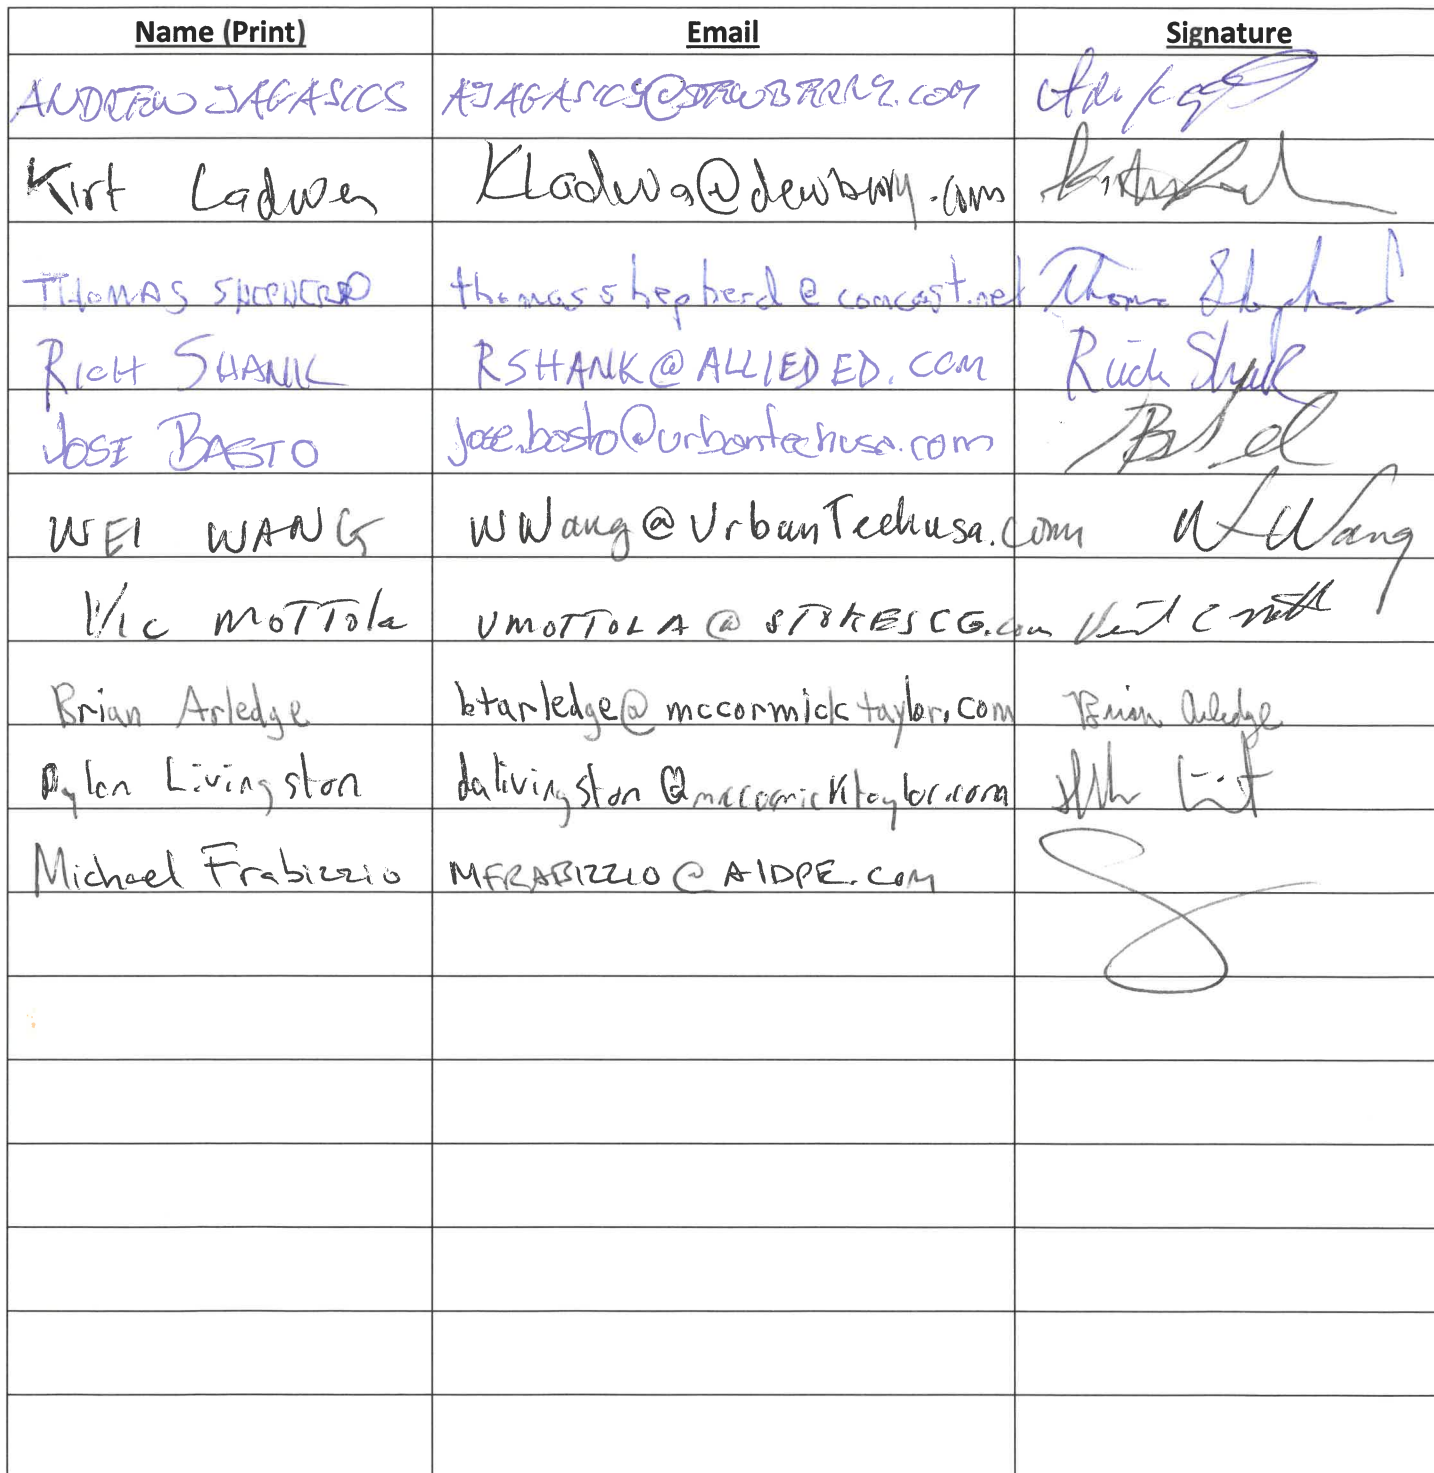 Name (Print) Email Signature
ANDREW JAGASICS AJAGASICS@DEWBERRY.COM
Kirt Ladwa KLadwa@dewberry.com
THOMAS SHEPHERD thomasshepherd@comcast.net Thomas Shepherd
RICH SHANK RSHANK@ALLIEDED.COM Rich Shank
JOSE BASTO jose.basto@urbantechusa.com
WEI WANG WWang@UrbanTechusa.com W Wang
Vic MOTTola VMOTTOLA@STOKESCG.com
Brian Arledge btarledge@mccormicktaylor.com Brian Arledge
Dylan Livingston dalivingston@mccormicktaylor.com
Michael Frabizzio MFRABIZZIO@AIDPE.COM